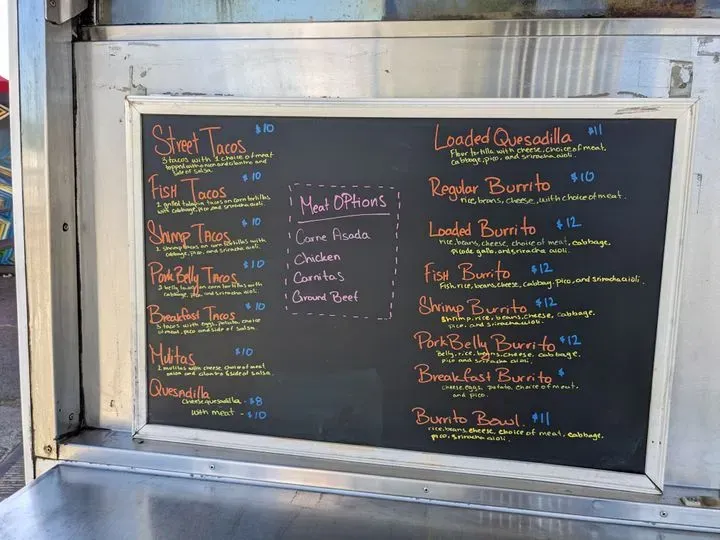 Street Tacos $10
3 tacos with 1 choice of meat
topped with onion and cilantro and
side of salsa
Fish Tacos $10
2 grilled tilapia tacos on corn tortillas
with cabbage, pico and sriracha aioli.
Shrimp Tacos $10
2 shrimp tacos on corn tortillas with
cabbage, pico, and sriracha aioli.
Pork Belly Tacos $10
2 belly tacos on corn tortillas with
cabbage, pico, and sriracha aioli.
Breakfast Tacos $10
3 tacos with eggs, potato, choice
of meat, pico and side of salsa.
Mulitas $10
2 mulitas with cheese, choice of meat,
onion and cilantro & side of salsa.
Quesadilla
cheese quesadilla - $8
with meat - $10
Meat Options
Carne Asada
Chicken
Carnitas
Ground Beef
Loaded Quesadilla $11
Flour tortilla with cheese, choice of meat,
cabbage, pico, and sriracha aioli.
Regular Burrito $10
rice, beans, cheese, with choice of meat.
Loaded Burrito $12
rice, beans, cheese, choice of meat, cabbage,
pico de gallo, and sriracha aioli.
Fish Burrito $12
Fish, rice, beans, cheese, cabbag, pico, and sriracha aioli.
Shrimp Burrito $12
Shrimp, rice, beans, cheese, cabbage,
pico, and sriracha aioli.
Pork Belly Burrito $12
Belly, rice, beans, cheese, cabbage,
pico and sriracha aioli.
Breakfast Burrito $
cheese, eggs, potato, choice of meat,
and pico.
Burrito Bowl. $11
rice, beans, cheese, choice of meat, cabbage,
pico, sriracha aioli.